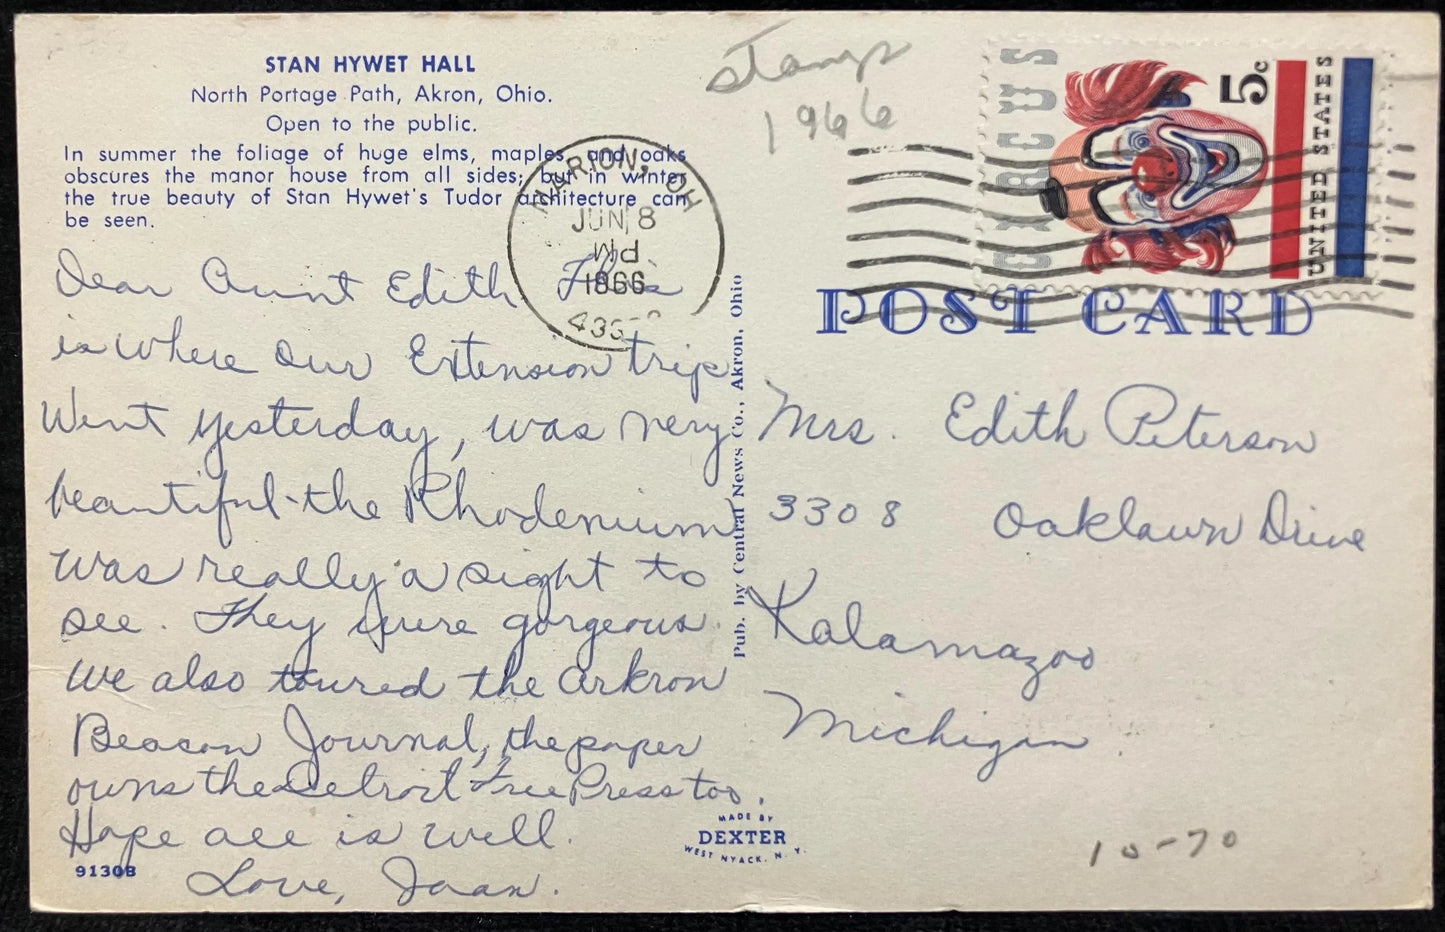 STAN HYWET HALL
North Portage Path, Akron, Ohio.
Open to the public.
In summer the foliage of huge elms, maples, and oaks
obscures the manor house from all sides; but in winter
the true beauty of Stan Hywet's Tudor architecture can
be seen.
Dear Aunt Edith This
is where our Extension trip
Went yesterday, was very
beautiful-the Rhodenium
was really a sight to
see. They were gorgeous.
We also toured the Arkron
Beacon Journal, the paper
owns the Detroit Free Press too.
Hope all is well.
Love, Joan.
9130B
Pub. by Central News Co., Akron, Ohio
MADE BY
DEXTER
WEST NYACK, N. Y.
Stamp
1966
MARION, OH
JUN 8
1966
CIRCUS
5c
UNITED STATES
POST CARD
Mrs. Edith Peterson
3308 Oaklawn Drive
Kalamazoo
Michigan
10-70